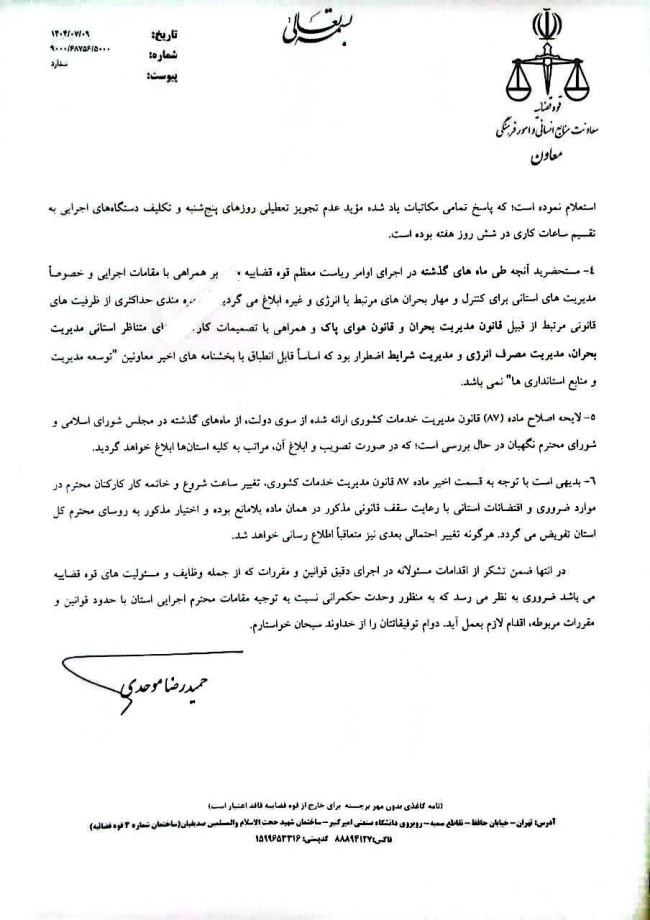 بسمه تعالی
تاریخ: ۱۴۰۴/۰۷/۰۹
شماره: ۹۰۰۰/۶۸۷۵۶/۵۰۰۰
پیوست: ندارد
قوه قضاییه
معاونت منابع انسانی و امور فرهنگی
معاون
استعلام نموده است؛ که پاسخ تمامی مکاتبات یاد شده مؤید عدم تجویز تعطیلی روزهای پنج‌شنبه و تکلیف دستگاه‌های اجرایی به
تقسیم ساعات کاری در شش روز هفته بوده است.
۴- مستحضرید آنچه طی ماه های گذشته در اجرای اوامر ریاست معظم قوه قضاییه بر همراهی با مقامات اجرایی و خصوصاً
مدیریت های استانی برای کنترل و مهار بحران های مرتبط با انرژی و غیره ابلاغ می گردید مندی حداکثری از ظرفیت های
قانونی مرتبط از قبیل قانون مدیریت بحران و قانون هوای پاک و همراهی با تصمیمات متناظر استانی مدیریت
بحران، مدیریت مصرف انرژی و مدیریت شرایط اضطرار بود که اساساً قابل انطباق با بخشنامه های اخیر معاونین "توسعه مدیریت
و منابع استانداری ها" نمی باشد.
۵- لایحه اصلاح ماده (۸۷) قانون مدیریت خدمات کشوری ارائه شده از سوی دولت، از ماه‌های گذشته در مجلس شورای اسلامی و
شورای محترم نگهبان در حال بررسی است؛ که در صورت تصویب و ابلاغ آن، مراتب به کلیه استان‌ها ابلاغ خواهد گردید.
۶- بدیهی است با توجه به قسمت اخیر ماده ۸۷ قانون مدیریت خدمات کشوری، تغییر ساعت شروع و خاتمه کار کارکنان محترم در
موارد ضروری و اقتضائات استانی با رعایت سقف قانونی مذکور در همان ماده بلامانع بوده و اختیار مذکور به روسای محترم کل
استان تفویض می گردد. هرگونه تغییر احتمالی بعدی نیز متعاقباً اطلاع رسانی خواهد شد.
در انتها ضمن تشکر از اقدامات مسئولانه در اجرای دقیق قوانین و مقررات که از جمله وظایف و مسئولیت های قوه قضاییه
می باشد ضروری به نظر می رسد که به منظور وحدت حکمرانی نسبت به توجیه مقامات محترم اجرایی استان با حدود قوانین و
مقررات مربوطه، اقدام لازم بعمل آید. دوام توفیقاتتان را از خداوند سبحان خواستارم.
حمیدرضا موحدی
(نامه کاغذی بدون مهر برجسته برای خارج از قوه قضاییه فاقد اعتبار است)
آدرس: تهران - خیابان حافظ - تقاطع سمیه - روبروی دانشگاه صنعتی امیرکبیر - ساختمان شهید حجت الاسلام والمسلمین صدیقیان(ساختمان شماره ۳ قوه قضائیه)
فاکس:۸۸۸۹۴۱۲۷ کدپستی: ۱۵۹۹۶۵۳۳۱۶